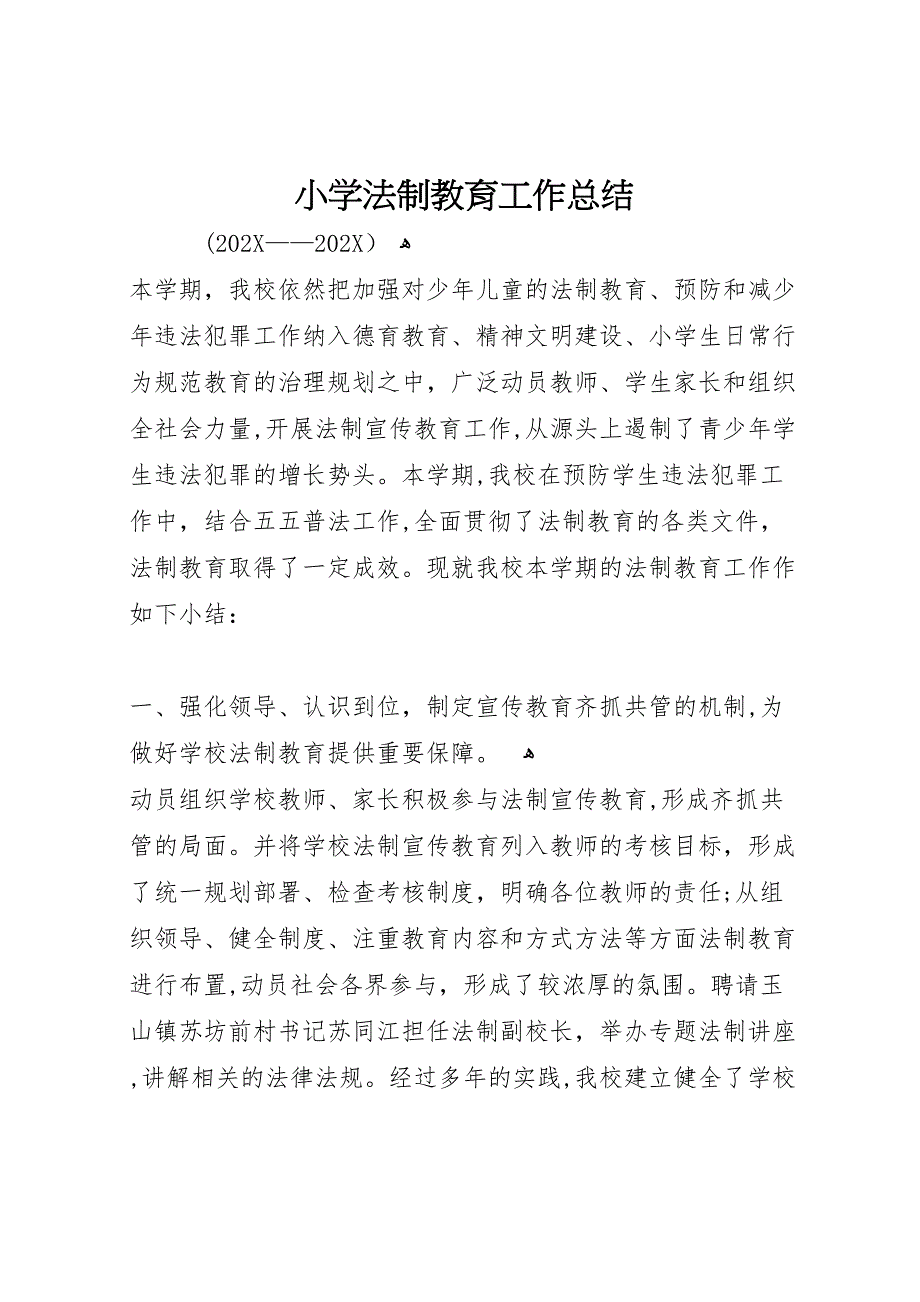 小学法制教育工作总结
(202X——202X） ﻫ
本学期，我校依然把加强对少年儿童的法制教育、预防和减少
年违法犯罪工作纳入德育教育、精神文明建设、小学生日常行
为规范教育的治理规划之中，广泛动员教师、学生家长和组织
全社会力量,开展法制宣传教育工作,从源头上遏制了青少年学
生违法犯罪的增长势头。本学期,我校在预防学生违法犯罪工
作中，结合五五普法工作,全面贯彻了法制教育的各类文件，
法制教育取得了一定成效。现就我校本学期的法制教育工作作
如下小结：
一、强化领导、认识到位，制定宣传教育齐抓共管的机制,为
做好学校法制教育提供重要保障。 ﻫ
动员组织学校教师、家长积极参与法制宣传教育,形成齐抓共
管的局面。并将学校法制宣传教育列入教师的考核目标，形成
了统一规划部署、检查考核制度，明确各位教师的责任;从组
织领导、健全制度、注重教育内容和方式方法等方面法制教育
进行布置,动员社会各界参与，形成了较浓厚的氛围。聘请玉
山镇苏坊前村书记苏同江担任法制副校长，举办专题法制讲座
,讲解相关的法律法规。经过多年的实践,我校建立健全了学校